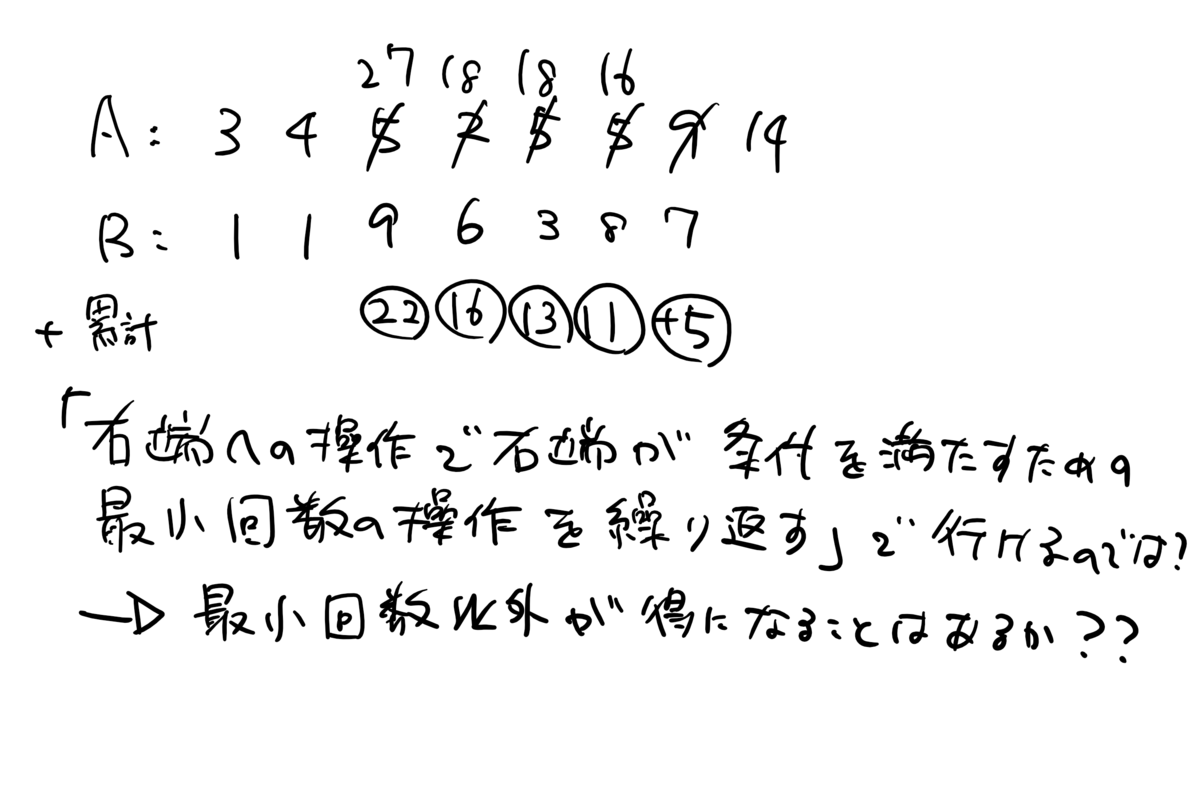 27 18 18 16
A: 3 4 5 2 5 5 9 14
B: 1 1 9 6 3 8 7
+ 累計 22 16 13 11 +5
「右端への操作で右端が条件を満たすための
最小回数の操作を繰り返す」で行けるのでは?
→ 最小回数以外が得になることはあるか??